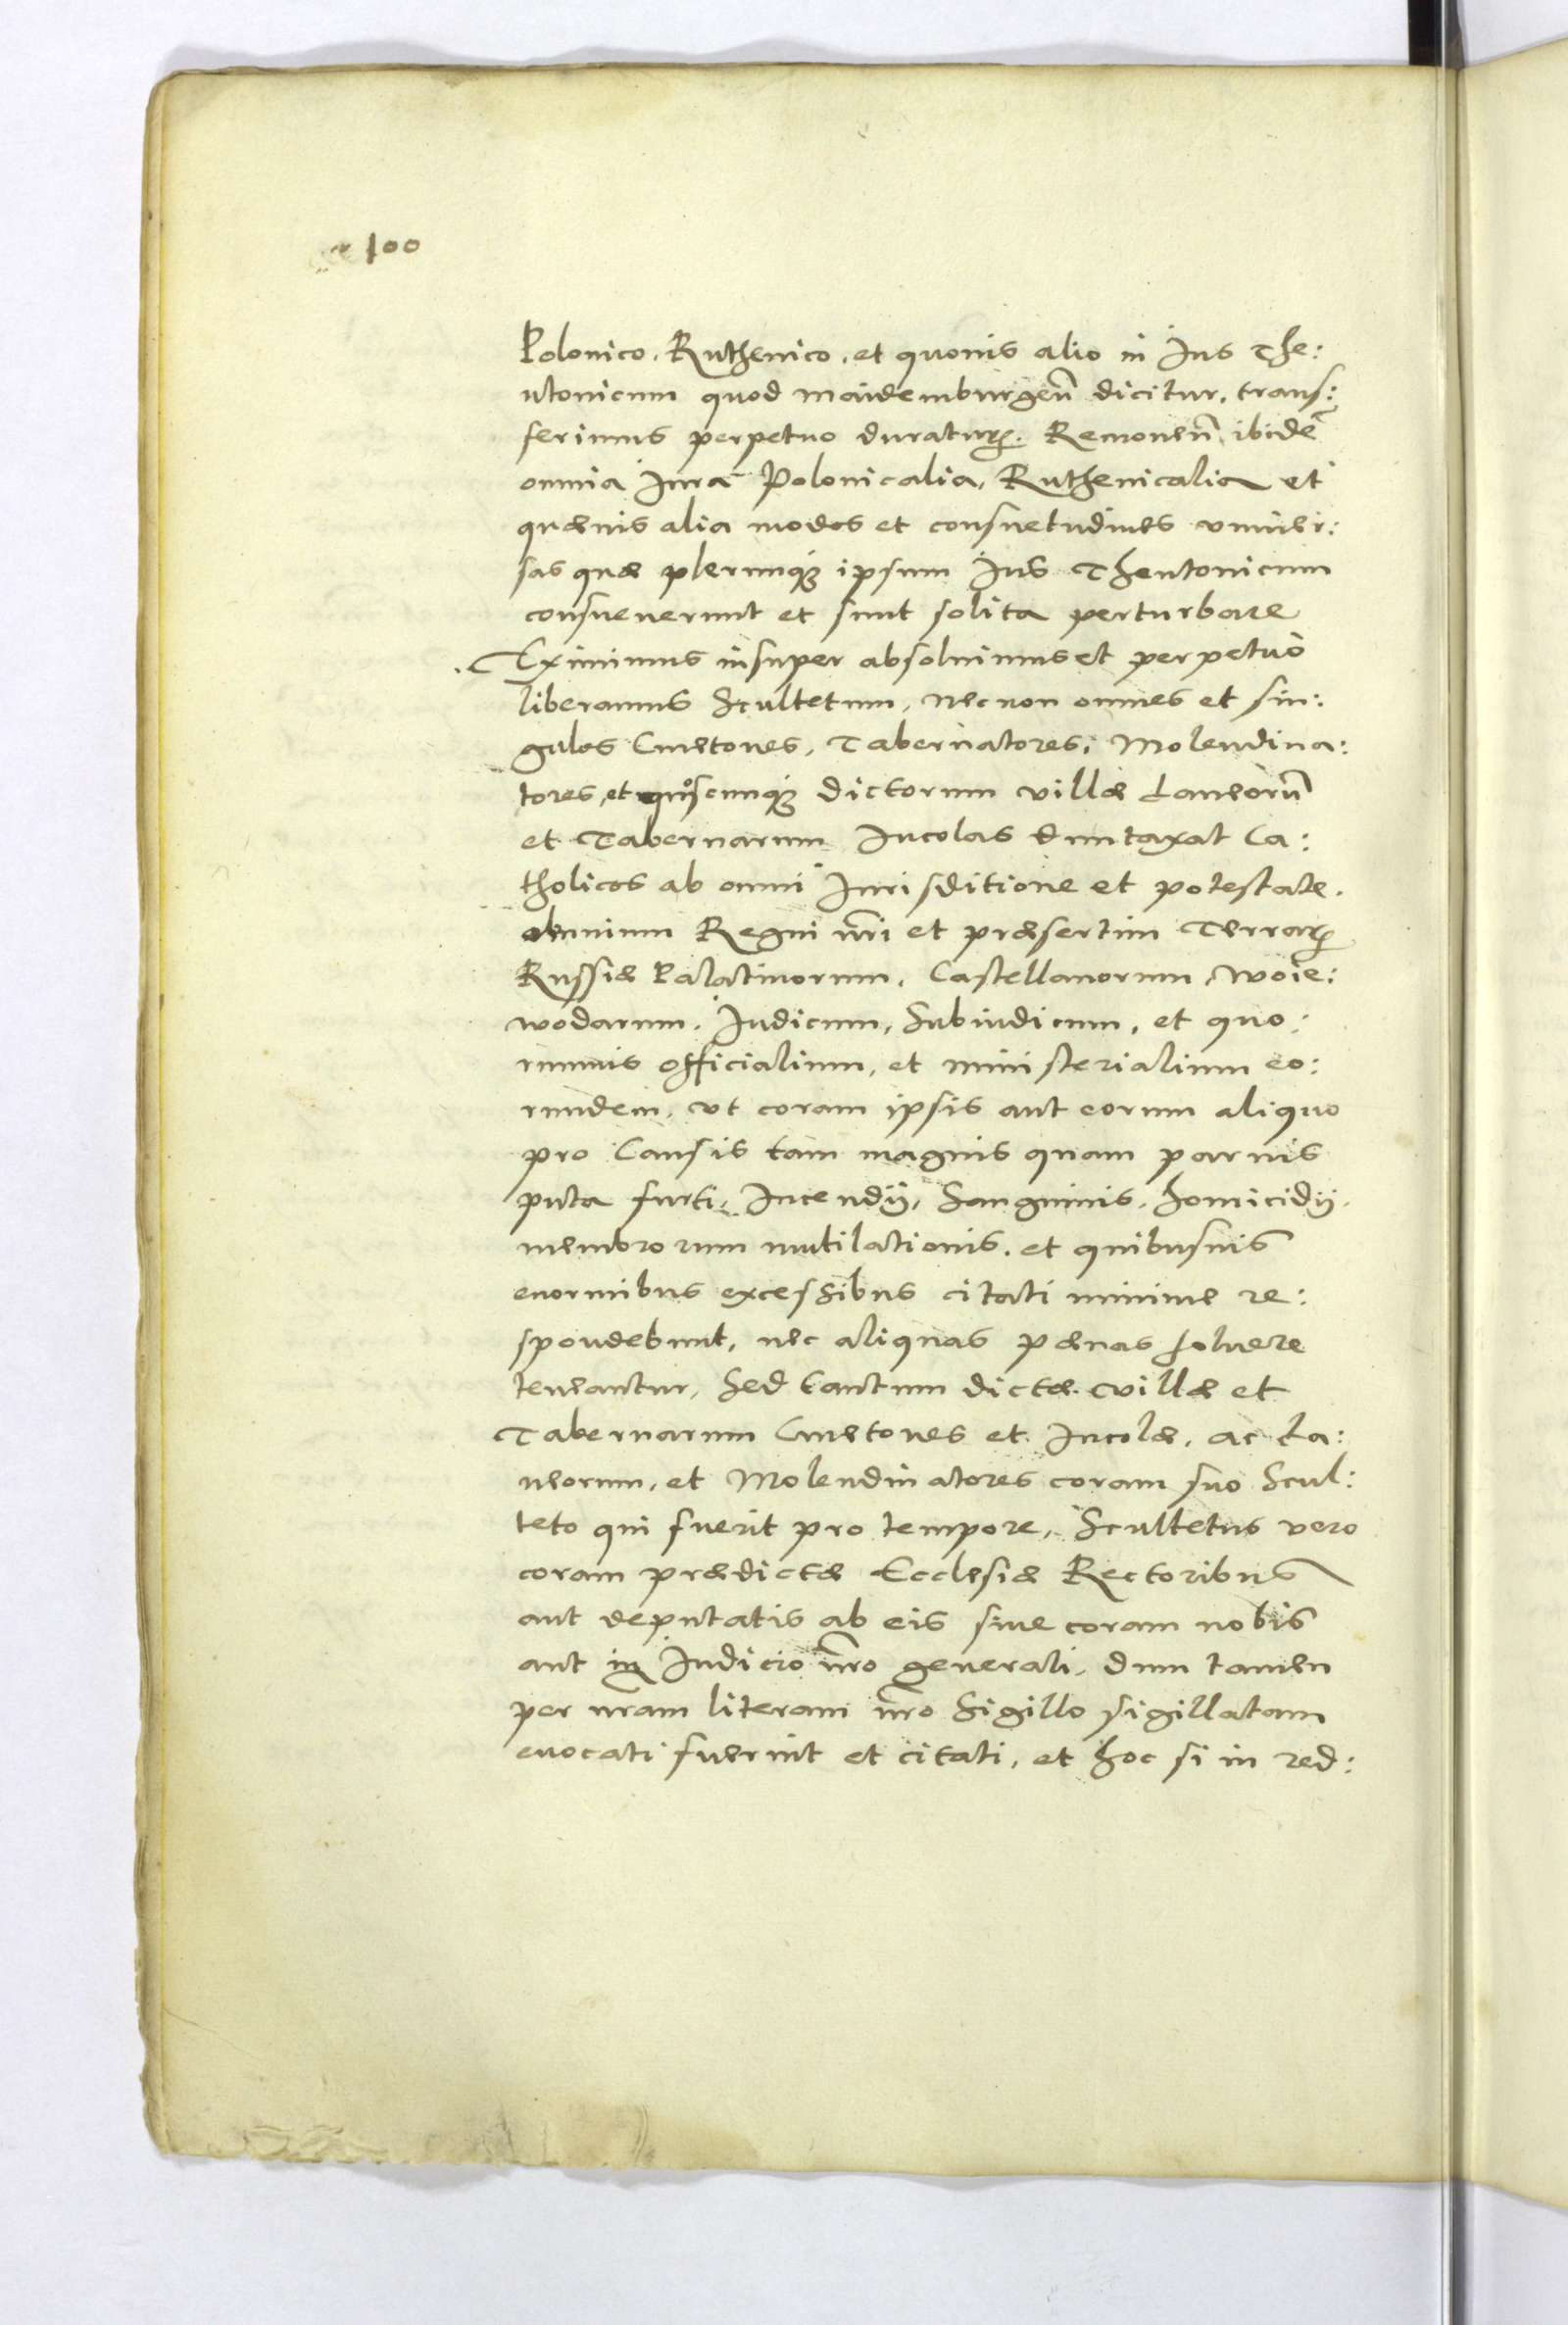 100
Polonico, Ruthenico, et quouis alio in Ius The:
utonicum quod Maidemburgeñ dicitur, trans:
ferimus perpetuo duraturꝝ. Remoueñ ibidē
omnia Iura Polonicalia, Ruthenicalia et
quæuis alia modos et consuetudines vniuer:
sas quæ plerumqꝫ ipsum Ius Theutonicum
consueuerunt et sunt solita perturbare
Eximimus insuper absoluimus et perpetuo
liberamus Scultetum, nec non omnes et sin:
gulos Cmetones, Tabernatores, Molendina:
tores, et quoscunqꝫ dictorum villæ Laneorū
et Tabernarum Incolas duntaxat Ca:
tholicos ab omni Iurisditione et potestate.
omnium Regni nr̄i et præsertim Terrarꝝ
Russiæ Palatinorum, Castellanorum, Woie:
wodarum, Iudicum, Subiudicum, et quo:
rumuis officialium, et ministerialium eo:
rundem, vt coram ipsis aut eorum aliquo
pro Causis tam magnis quam paruis
puta furti, Incendij, Sanguinis, homicidij.
membrorum mutilationis, et quibusuis
enormibus excessibus citati minime re:
spondebunt, nec aliquas pœnas soluere
teneantur, Sed tantum dictæ villæ et
Tabernarum Cmetones et Incolæ, ac La:
neorum, et Molendinatores coram suo Scul:
teto qui fuerit pro tempore, Scultetus vero
coram prædictæ Ecclesiæ Rectoribus
aut deputatis ab eis siue coram nobis
aut in Iudicio nr̄o generali, dum tamen
per nram literam nr̄o Sigillo sigillatam
euocati fuerint et citati, et hoc si in red: